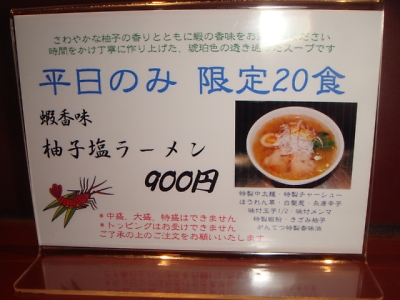 さわやかな柚子の香りとともに蝦の香味をお
ください
時間をかけ丁寧に作り上げた、琥珀色の透き
スープです
平日のみ 限定20食
蝦香味
柚子塩ラーメン
900円
特製中太麺・特製チャーシュー
ほうれん草・白髪葱・糸唐辛子
味付玉子1/2・味付メンマ
特製蝦粉・きざみ柚子
がんてつ特製香味油
*中盛、大盛、特盛はできません
*トッピングはお受けできません
ご了承の上のご注文をお願いいたします